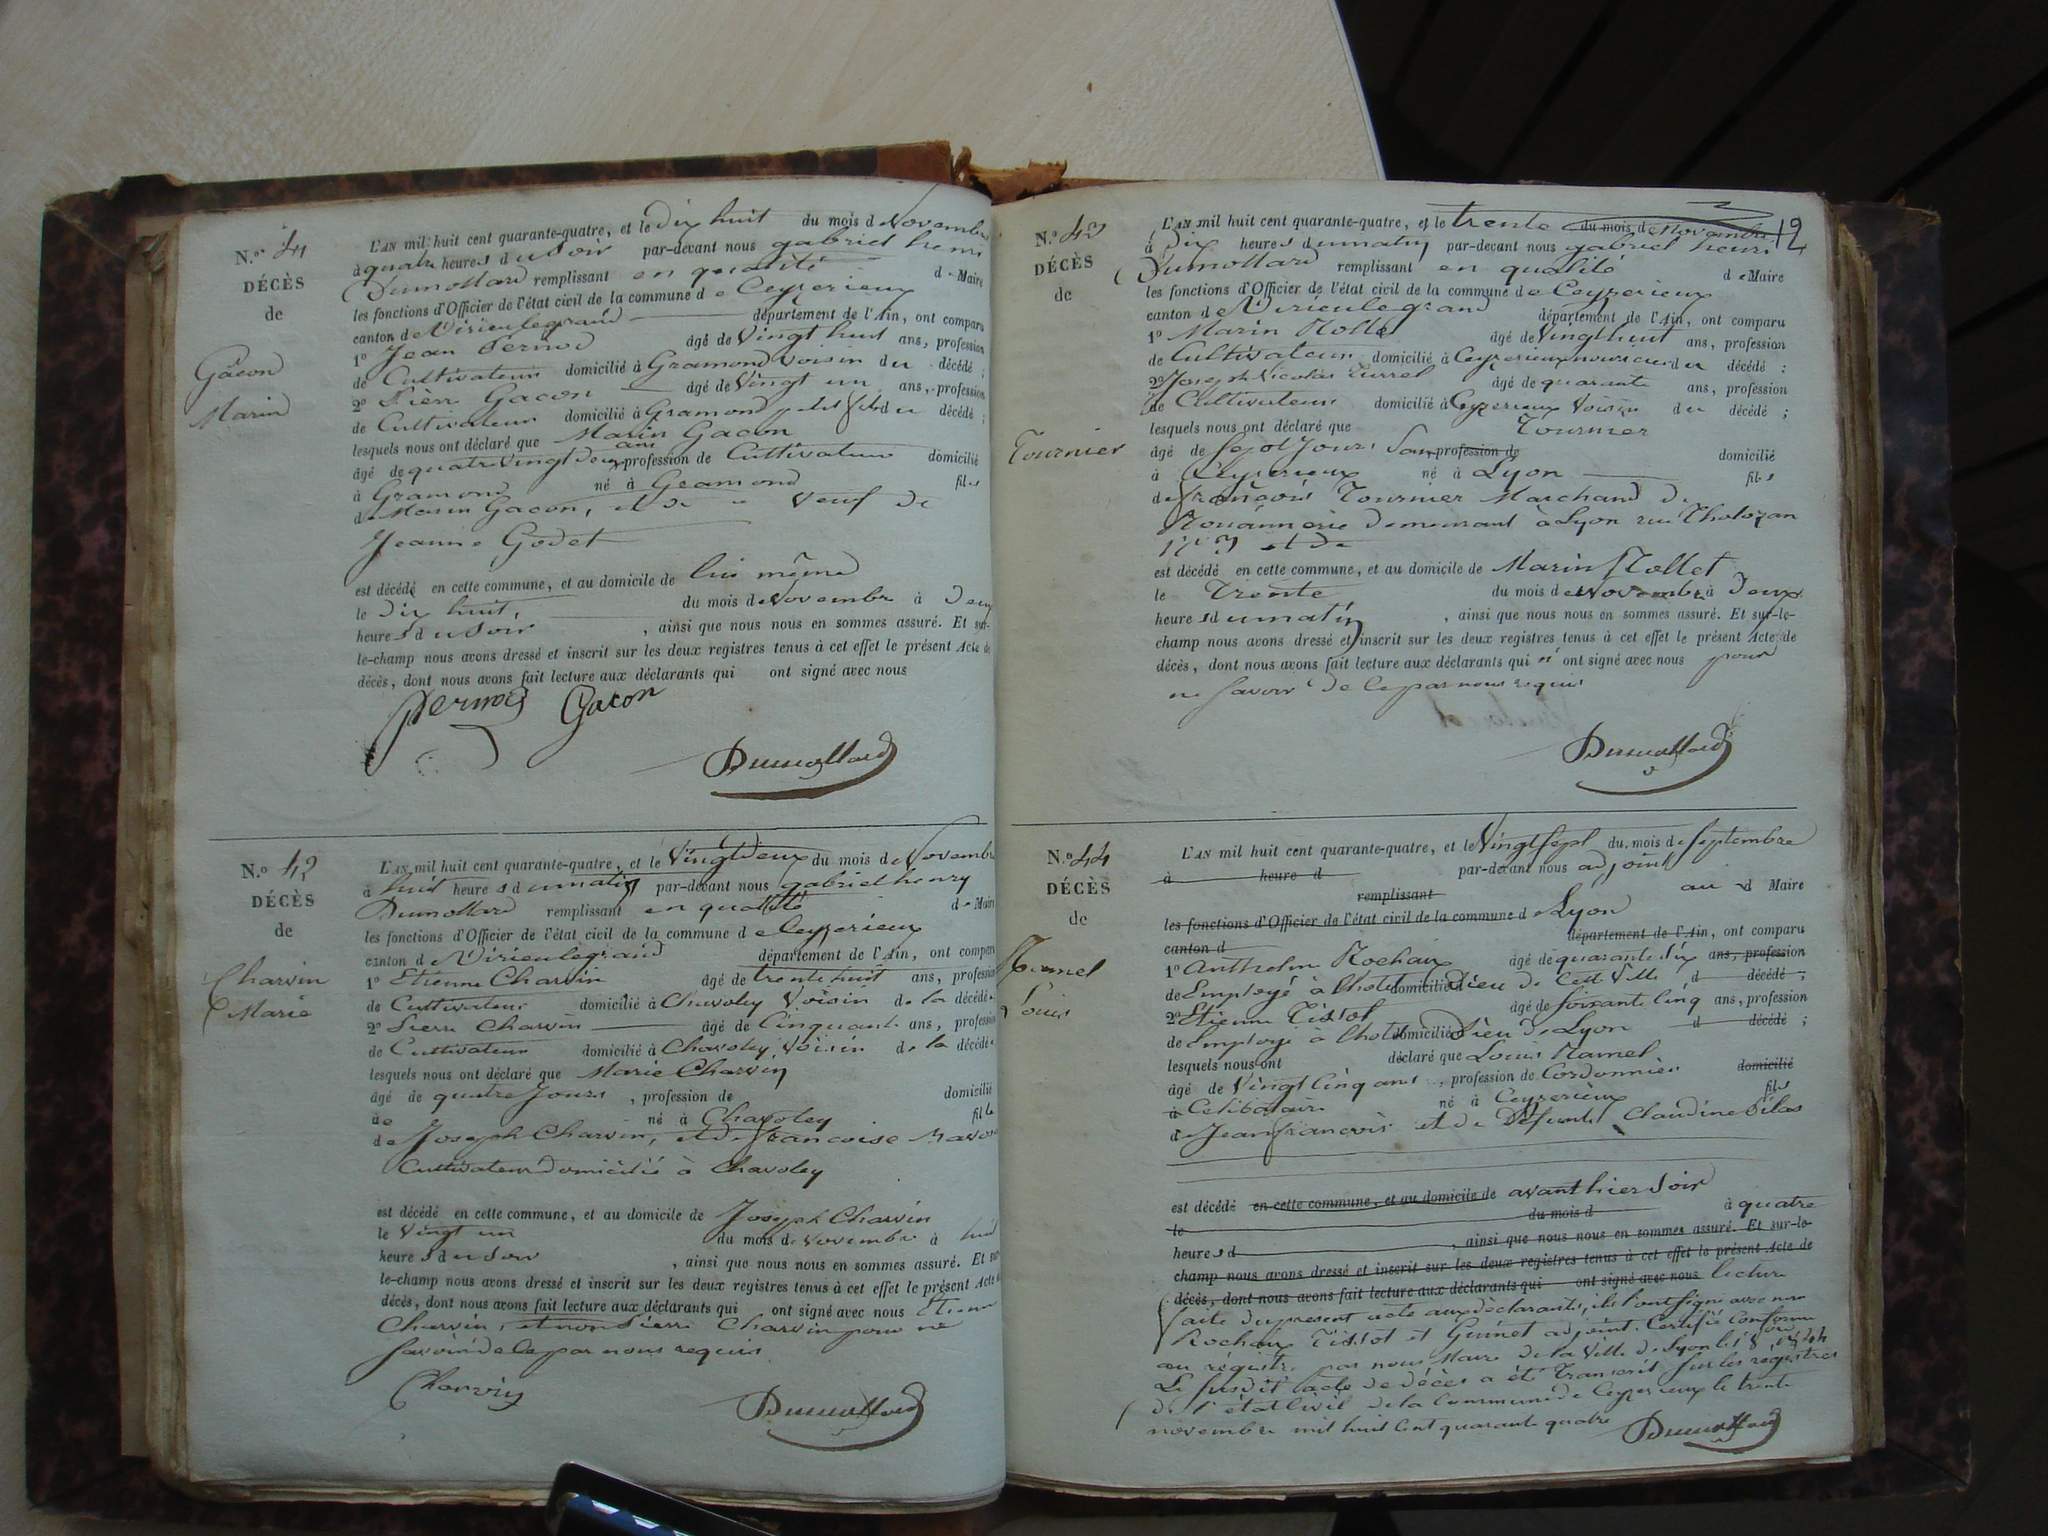 N.º 41
DÉCÈS
de
Gâcon
Marin
L'AN mil huit cent quarante-quatre, et le Dix huit du mois de Novembre
à quatre heures du soir par-devant nous gabriel henri
Dumollard remplissant en qualité de Maire
les fonctions d'Officier de l'état civil de la commune de Ceyzerieux
canton de Virieulegrand département de l'Ain, ont comparu
1º Jean Pernod âgé de Vingt huit ans, profession
de Cultivateur domicilié à Gramond Voisin du décédé ;
2º Pierre Gacon âgé de Vingt un ans, profession
de Cultivateur domicilié à Gramond petit fils du décédé ;
lesquels nous ont déclaré que Marin Gacon
âgé de quatre Vingt Deux ans profession de Cultivateur domicilié
à Gramond né à Gramond fils
de Marin Gacon, et de = Veuf de
Jeanne Godet
est décédé en cette commune, et au domicile de lui même
le dix huit, du mois de Novembre à Deux
heures du Soir , ainsi que nous nous en sommes assuré. Et sur-
le-champ nous avons dressé et inscrit sur les deux registres tenus à cet effet le présent Acte de
décès, dont nous avons fait lecture aux déclarants qui ont signé avec nous
Gacon
Dumollard
N.º 42
DÉCÈS
de
Charvin
Marie
L'AN mil huit cent quarante-quatre, et le Vingt Deux du mois de Novembre
à huit heures du matin par-devant nous gabriel henry
Dumollard remplissant en qualité de Maire
les fonctions d'Officier de l'état civil de la commune de Ceyzerieux
canton de Virieulegrand département de l'Ain, ont comparu
1º Etienne Charvin âgé de trente huit ans, profession
de Cultivateur domicilié à Chavoley Voisin de la décédée
2º Pierre Charvin âgé de Cinquante ans, profession
de Cultivateur domicilié à Chavoley, Voisin de la décédée
lesquels nous ont déclaré que Marie Charvin
âgé de quatre Jours , profession de domicilié
à né à Chavoley fille
de Joseph Charvin, et de francoise
Cultivateur domicilié à Chavoley
est décédé en cette commune, et au domicile de Joseph Charvin
le Vingt un du mois de Novembre à huit
heures du Soir , ainsi que nous nous en sommes assuré. Et sur-
le-champ nous avons dressé et inscrit sur les deux registres tenus à cet effet le présent Acte de
décès, dont nous avons fait lecture aux déclarants qui ont signé avec nous Etienne
Charvin, et non Pierre Charvin pour ne
savoir de ce par nous requis
Charvin
Dumollard
12
N.º 43
DÉCÈS
de
Tournier
L'AN mil huit cent quarante-quatre, et le trente du mois de Novembre
à Dix heures du matin par-devant nous gabriel henri
Dumollard remplissant en qualité de Maire
les fonctions d'Officier de l'état civil de la commune de Ceyzerieux
canton de Virieulegrand département de l'Ain, ont comparu
1º Marin Mollet âgé de Vingt huit ans, profession
de Cultivateur domicilié à Ceyzerieux nourricier du décédé ;
2º Joseph Nicolas Turrel âgé de quarante ans, profession
de Cultivateur domicilié à Ceyzerieux Voisin du décédé ;
lesquels nous ont déclaré que Tournier
âgé de Sept Jours Sans profession de domicilié
à Ceyzerieux né à Lyon fils
de françois Tournier Marchand de
Rouännerie demeurant à Lyon rue Tholozan
nº 3 et de
est décédé en cette commune, et au domicile de Marin Mollet
le Trente du mois de Novembre à Deux
heures du matin , ainsi que nous nous en sommes assuré. Et sur-le-
champ nous avons dressé et inscrit sur les deux registres tenus à cet effet le présent Acte de
décès, dont nous avons fait lecture aux déclarants qui n' ont signé avec nous pour
ne Savoir de ce par nous requis
Dumollard
N.º 44
DÉCÈS
de
Louis
L'AN mil huit cent quarante-quatre, et le Vingt Sept du mois de Septembre
à heure d par-devant nous adjoint
remplissant au d Maire
les fonctions d'Officier de l'état civil de la commune de Lyon
canton d département de l'Ain, ont comparu
1º Anthelme Rochaix âgé de quarante Six ans, profession
de Employé à l'hotel domicilié à Dieu de Cette Ville d décédé ;
2º Etienne Tissot âgé de soixante Cinq ans, profession
de Employé à l'hotel domicilié à Dieu de Lyon d décédé ;
lesquels nous ont déclaré que Louis
âgé de Vingt Cinq ans , profession de Cordonnier domicilié
à Celibataire né à Ceyzerieux fils
de Jean françois et de Défunte Claudine
est décédé en cette commune, et au domicile de avant hier Soir
le du mois d à quatre
heures d , ainsi que nous nous en sommes assuré. Et sur-le-
champ nous avons dressé et inscrit sur les deux registres tenus à cet effet le présent Acte de
décès, dont nous avons fait lecture aux déclarants qui ont signé avec nous lecture
faite du present acte aux déclarants, ils l'ont signé avec nous
Rochaix Tissot et Guinet adjoint. Certifié Conforme
au régistre par nous Maire de la Ville de Lyon le
Le susdit acte de décès a été transcrit sur les régistres
de l'état Civil de la Commune de Ceyzerieux le trente
novembre mil huit Cent quarante quatre Dumollard